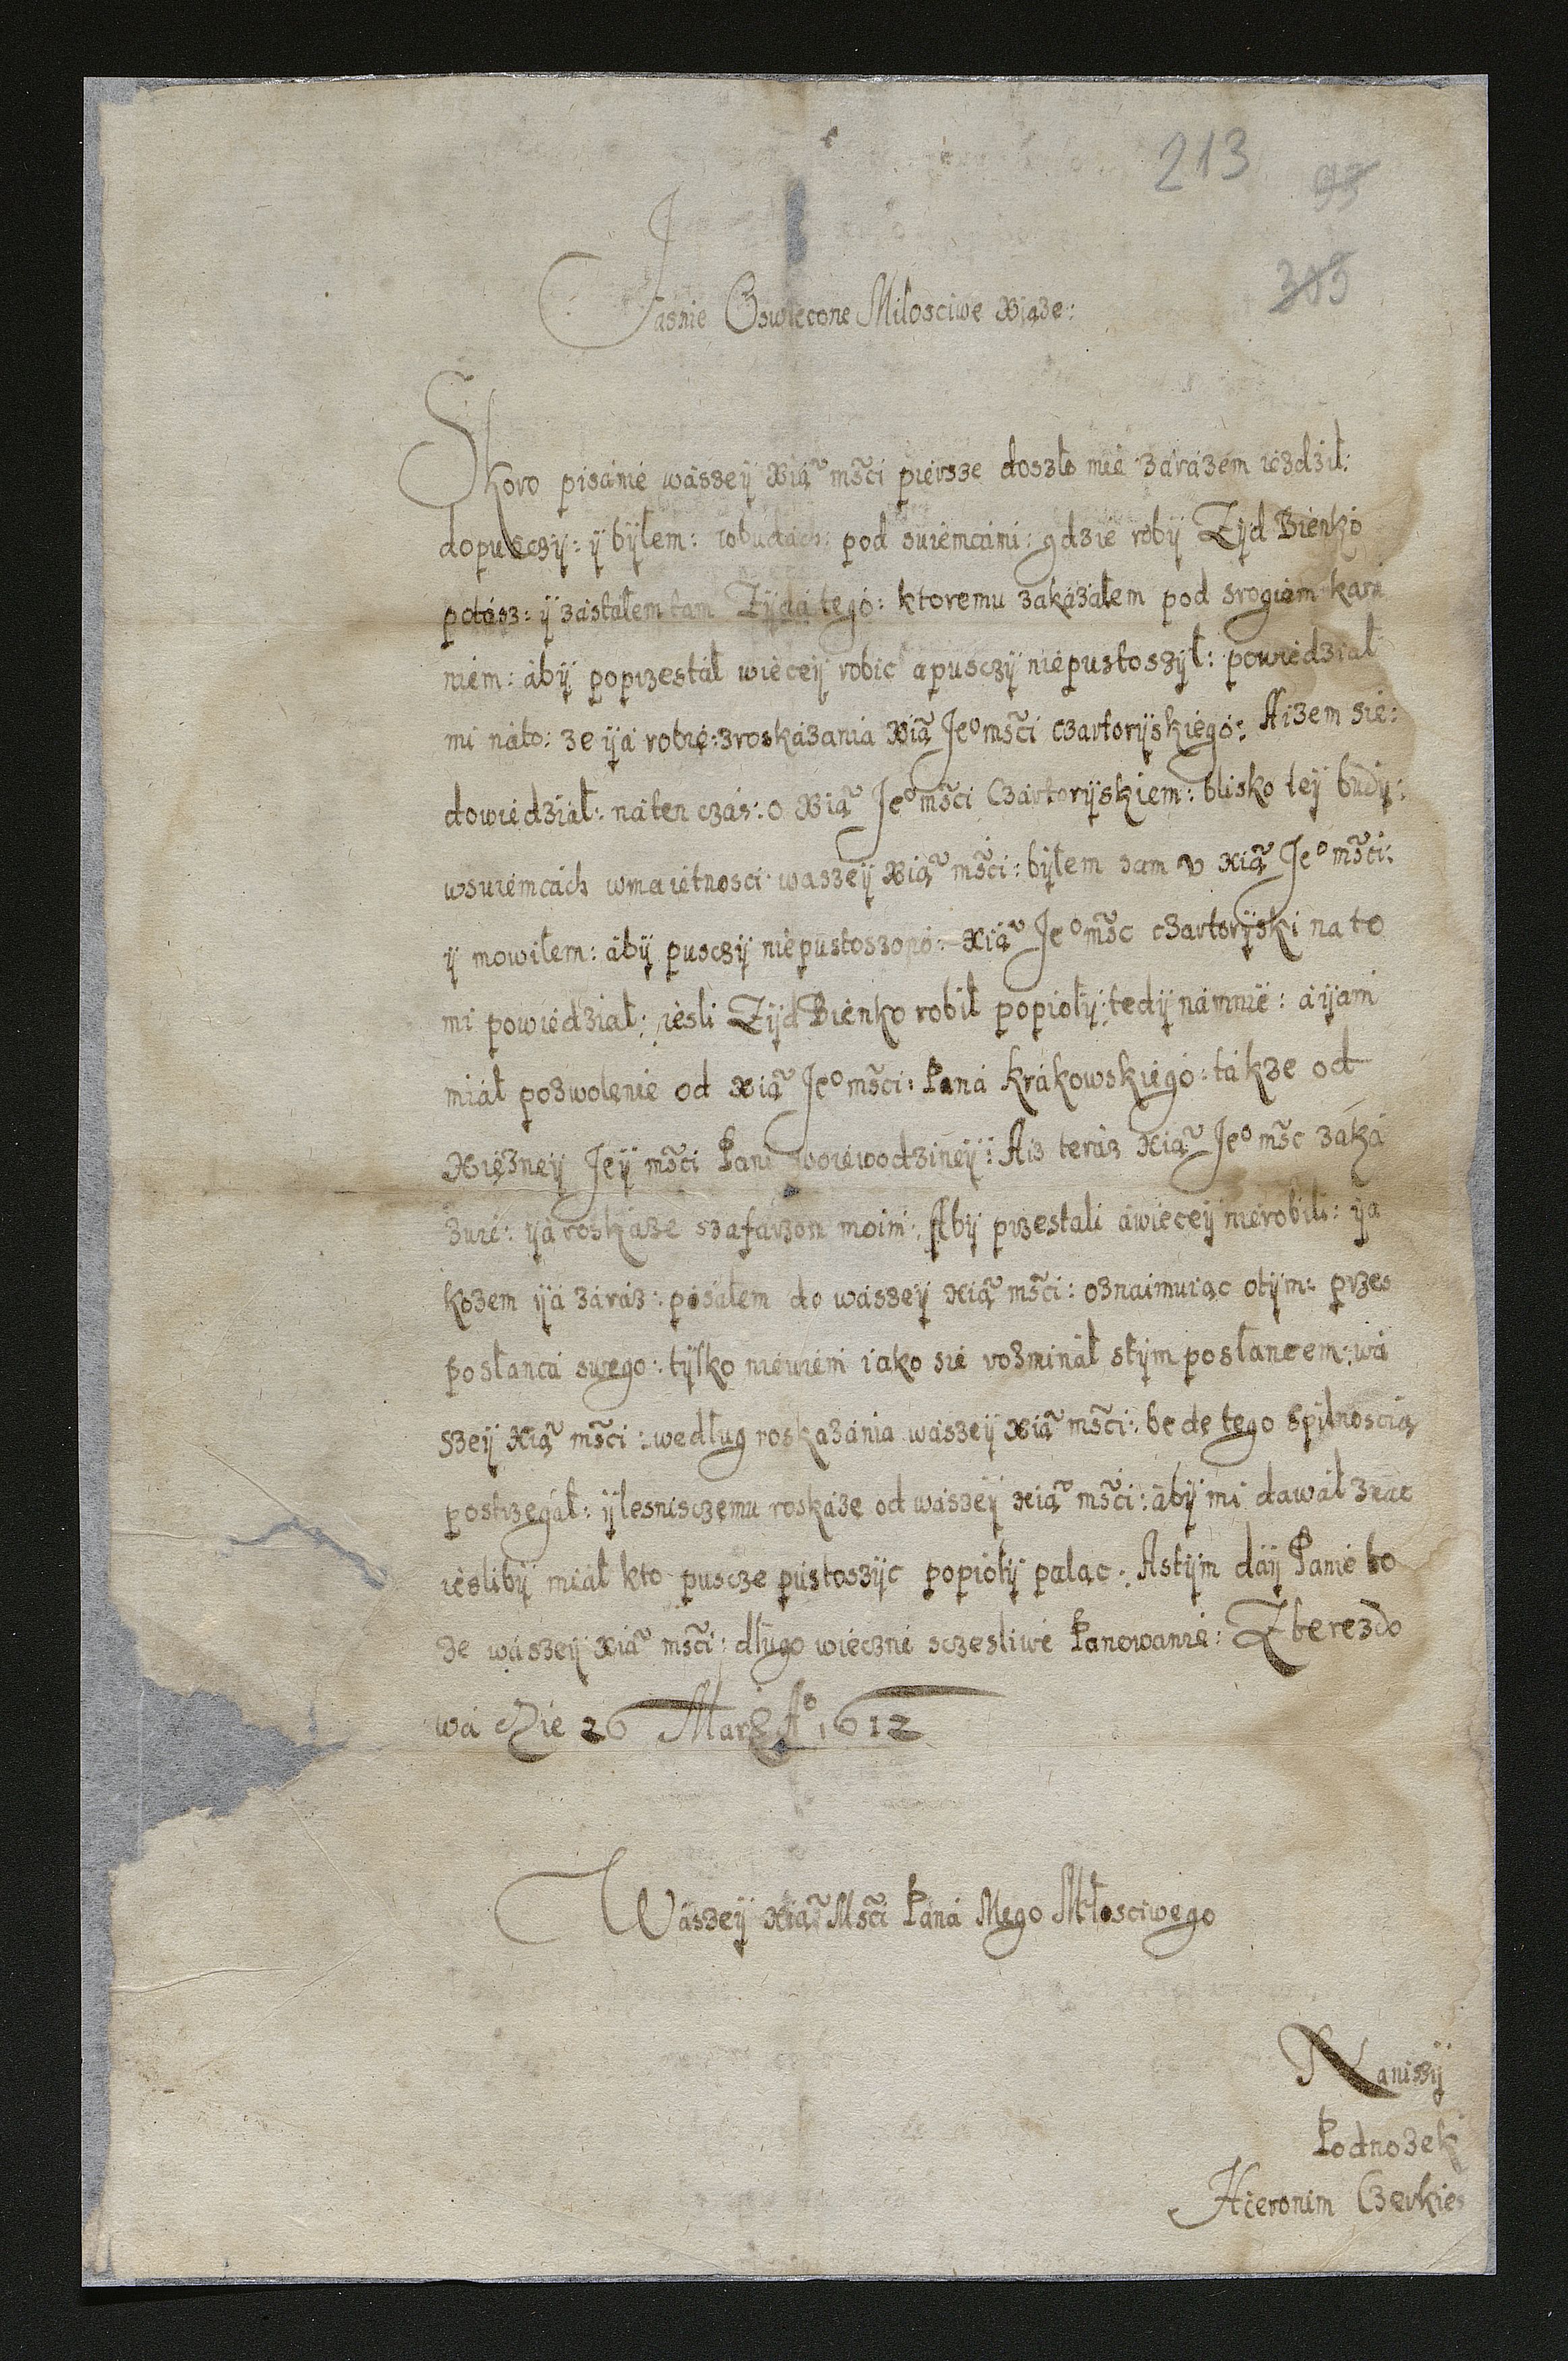 213
95
305
Jasnie Oswiecone Milosciwe Xiąze:
Skoro pisanie waszeÿ Xią mśći pierwsze doszło mie zarazem iezdził:
dopusczÿ: ÿ bÿłem: wbudach: pod suiemcami: gdzie robÿ Zÿd Bienko
potasz: ÿ zastałem tam Zÿda tego: ktoremu zakazałem pod srogiem kara
niem: abÿ poprzestał wieceÿ robic a pusczÿ niepustoszÿł: powiedział
mi nato: ze ÿa robie: zroskazania Xią Jeº mśći czartorÿskiego: Aizem sie:
dowiedział: naten czas: o Xią Jeº mśći Czartorÿskiem: blisko teÿ budÿ:
wsuiemcach wmaietnosci waszeÿ Xią mśći: bÿłem sam v xią Jeº mśći:
ÿ mowiłem: abÿ pusczÿ niepustoszono: xią Jeº mść czartorÿski na to
mi powiedział: iesli Zÿd Bienko robił popiołÿ: tedÿ namnie: a ÿam
miał pozwolenie od xią Jeº mśći: Pana krakowskiego: takze od
Xięzneÿ Jeÿ mśći Pani woiewodzineÿ: Aiz teraz xią Jeº mść zaka
zuie: ÿa roskaze szafarzom moim: Abÿ przestali awieceÿ nierobili: ÿa
kozem ÿa zaraz: pisałem do waszeÿ xią mśći: oznaimuiąc otÿm: przes
posłanca swego: tÿlko niewiem iako sie rozminał stÿm posłancem: wa
szeÿ xią mśći: według roskazania waszeÿ xią mśći: bede tego spilnoscią
postrzegał: ÿ lesnisczemu roskaze od waszeÿ xią mśći: abÿ mi dawał znac
ieslibÿ miał kto puscze pustoszÿc popiołÿ paląc: Astÿm daÿ Panie bo
ze waszeÿ xią mśći: długo wieczne sczesliwe Panowanie: Zberezdo
wa Die 26 Marz Aº 1612
Waszeÿ xią Mśći Pana Mego Młosciwego
Naniszÿ
Podnozek
Hieronim Czerkies